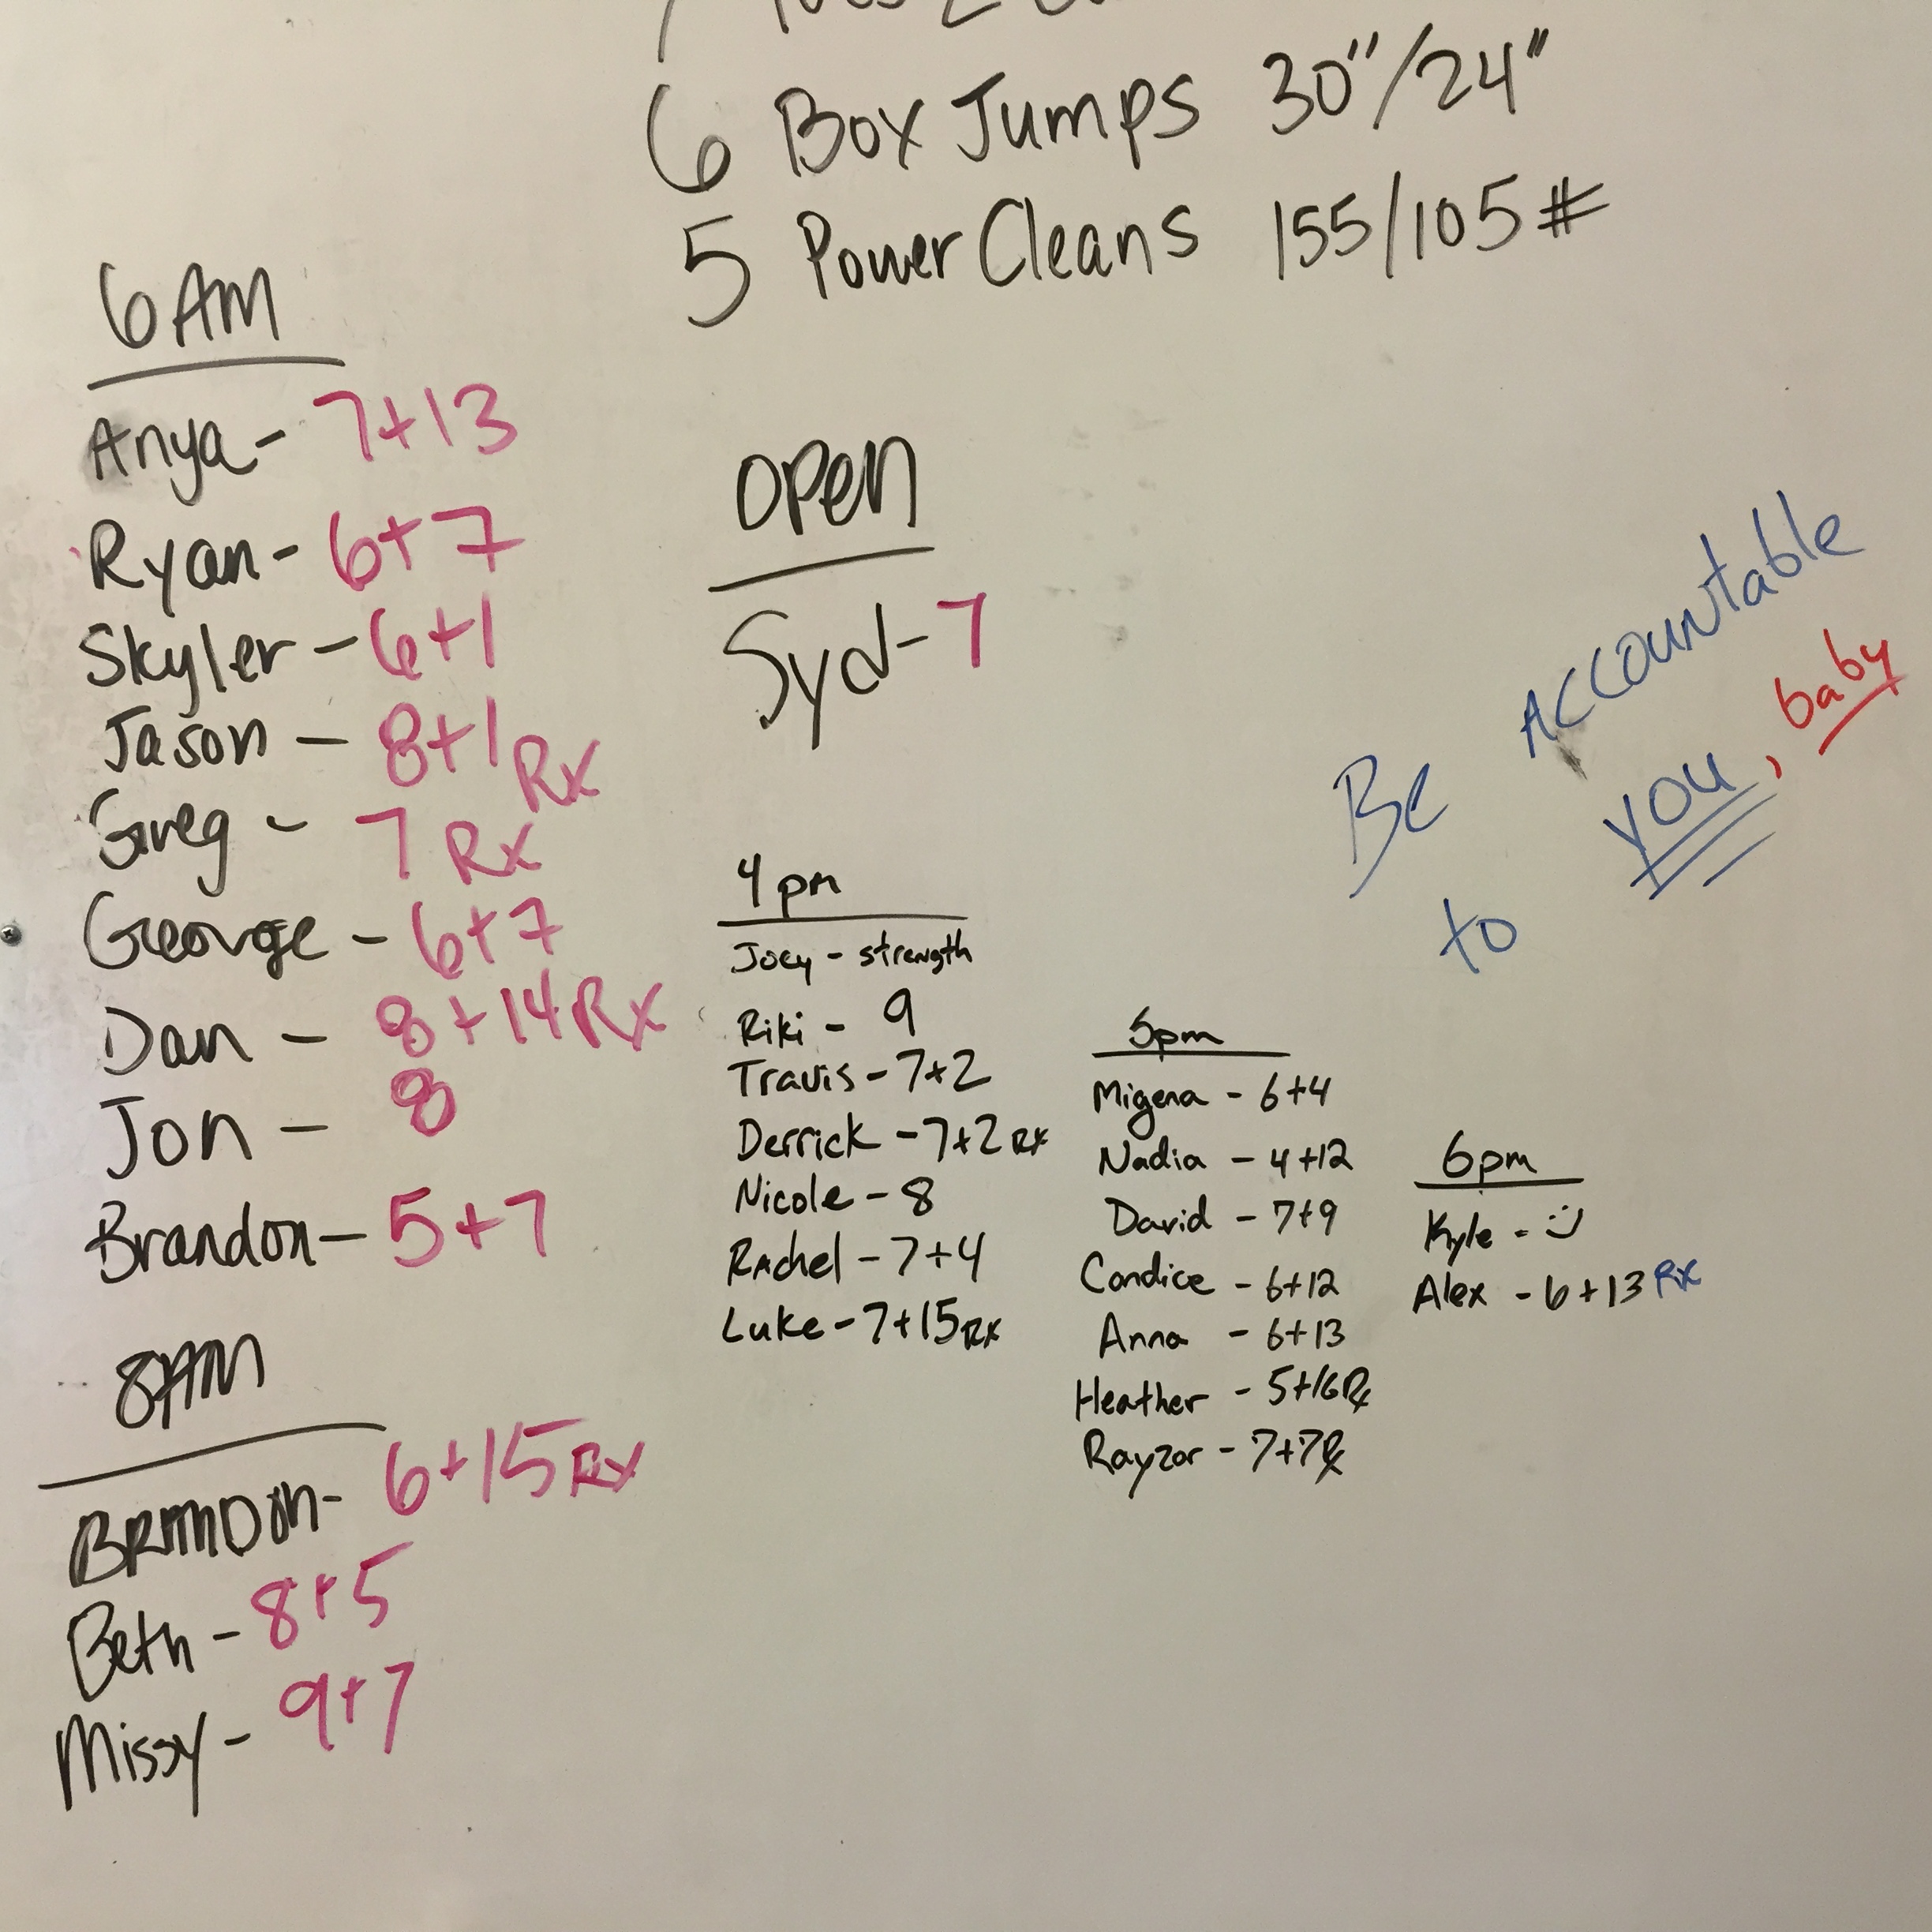 6 Box Jumps 30"/24"
5 Power Cleans 155/105#
6AM
Anya - 7+13
Ryan - 6+7
Skyler - 6+1
Jason - 8+1 Rx
Greg - 7 Rx
George - 6+7
Dan - 8+14 Rx
Jon - 8
Brandon - 5+7
8AM
BRANDON - 6+15 Rx
Beth - 8+5
Missy - 9+7
OPEN
Syd - 7
4pm
Joey - strength
Riki - 9
Travis - 7+2
Derrick - 7+2 Rx
Nicole - 8
Rachel - 7+4
Luke - 7+15 Rx
5pm
Migena - 6+4
Nadia - 4+12
David - 7+9
Candice - 6+12
Anna - 6+13
Heather - 5+16 Rx
Rayzor - 7+7 Rx
6pm
Kyle - :)
Alex - 6+13 Rx
Be Accountable
to you, baby